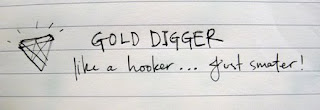 GOLD DIGGER
like a hooker... just smater!